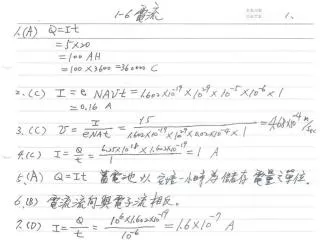 1-6 電流
1.
1.(A) Q=It
=5×20
=100 AH
=100×3600=360000 C
2.(C) I=e NAVt=1.602×10⁻¹⁹×10²⁹×10⁻⁵×10⁻⁶×1
=0.16 A
3.(C) V=I/eNAt=15/1.602×10⁻¹⁹×10²⁹×0.02×10⁻⁴×1=4.68×10⁻⁴ m/sec
4.(C) I=Q/t=6.25×10¹⁸×1.602×10⁻¹⁹/1=1 A
5.(A) Q=It 蓄電池以安培-小時為儲存電量之單位.
6.(B) 電流流向與電子流相反.
7.(D) I=Q/t=10⁶×1.602×10⁻¹⁹/10⁻⁶=1.6×10⁻⁷ A